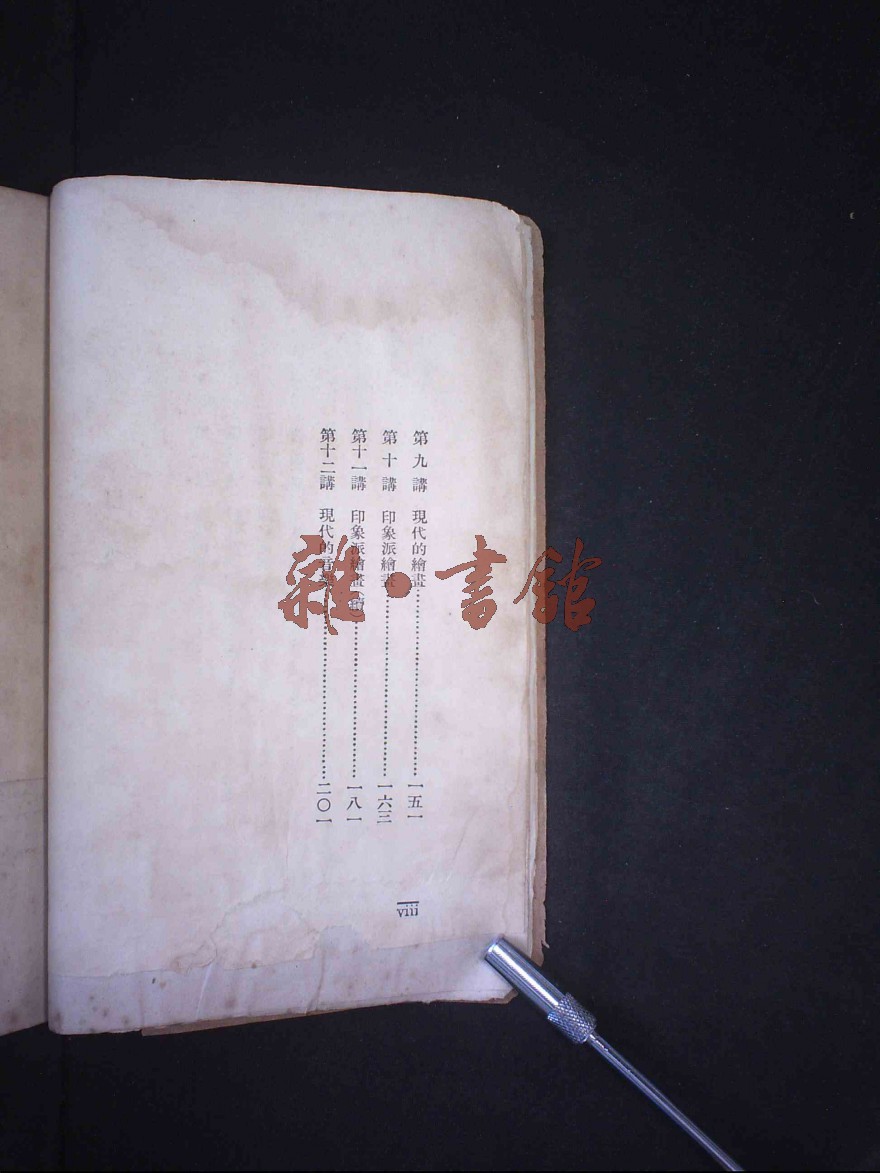 第九講 現代的繪畫…………………一五一
第十講 印象派繪畫…………………一六三
第十一講 印象派繪畫(續)…………………一八一
第十二講 現代的音樂…………………二〇一
viii
雜·書館